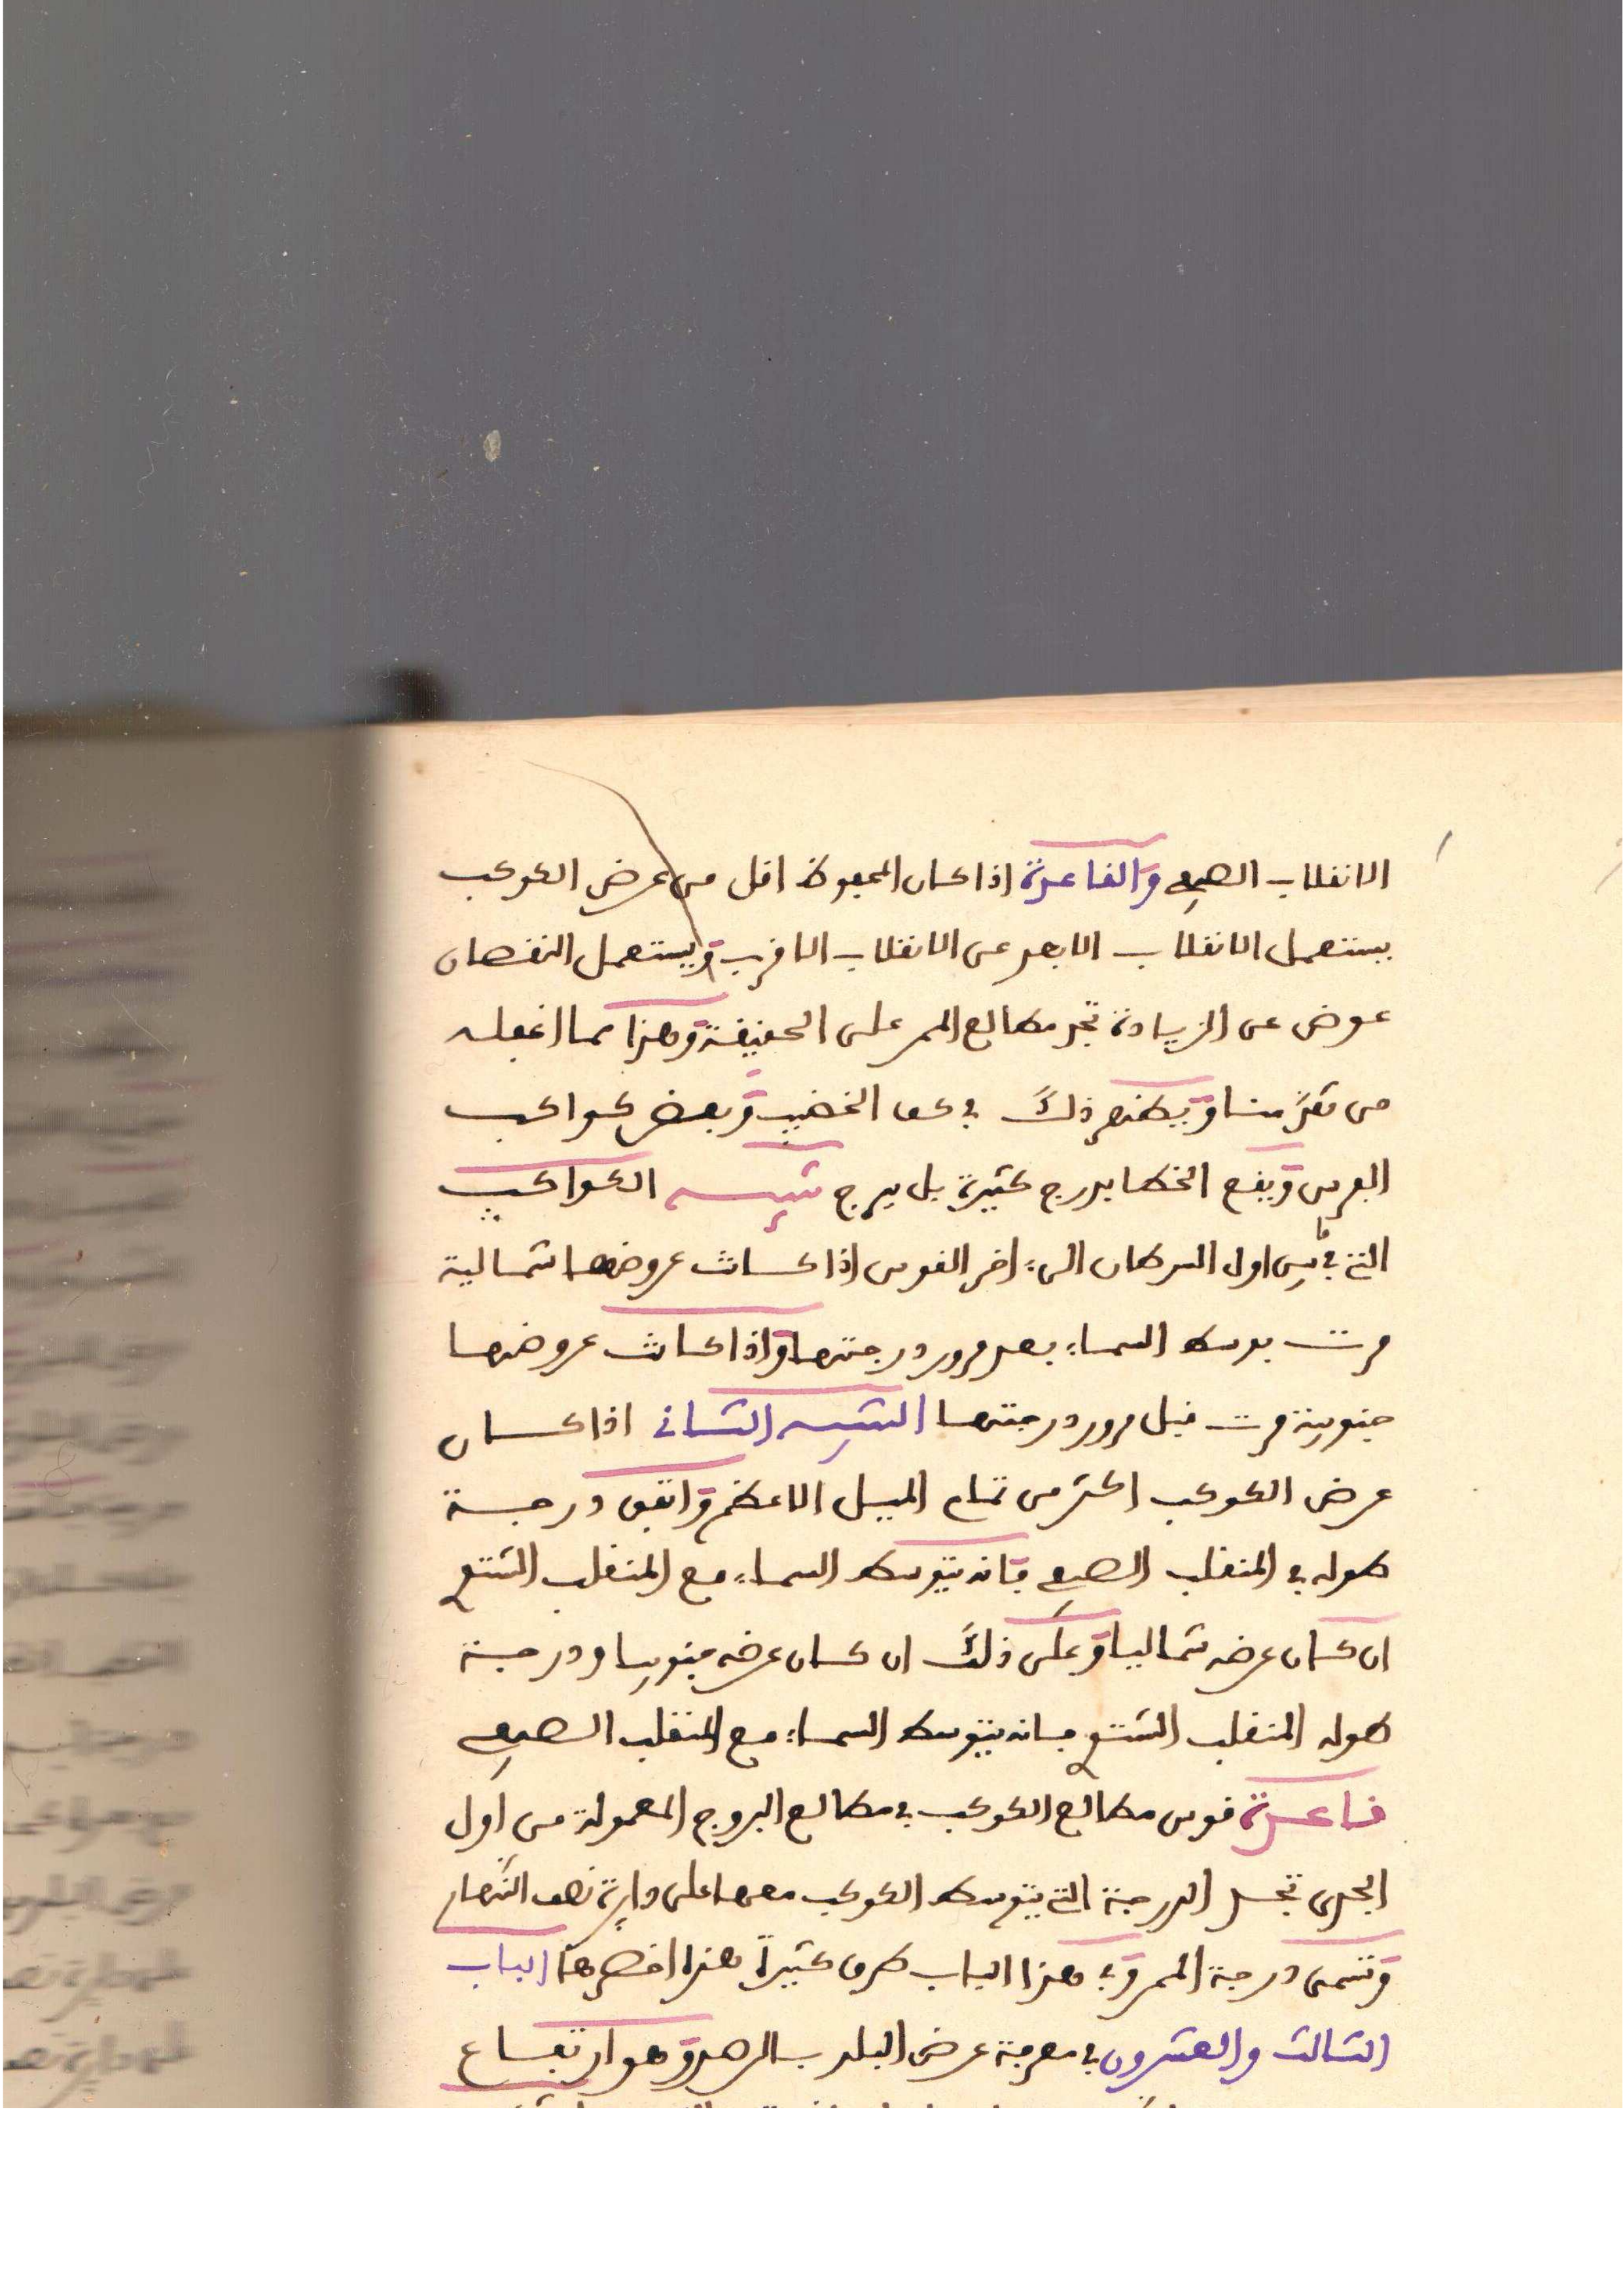 الانقلاب الصيفي والقاعدة اذا كان المحفوظ اقل من عرض الكوكب
يستعمل الانقلاب الابعد عن الانقلاب الاقرب ويستعمل النقصان
عوض عن الزيادة تجد مطالع الممر على الحقيقة وهذا مما اغفله
من تقدمنا ويظهر ذلك في كف الخضيب وبعض كواكب
الفرس ويقع الخطا بدرج كثيرة بل ببرج تنبيه الكواكب
التي في بين اول السرطان الى اخر القوس اذا كانت عروضها شمالية
مرت بوسط السماء بعد مرور درجتها واذا كانت عروضها
جنوبية مرت قبل مرور درجتها التنبيه الثاني اذا كان
عرض الكوكب اكثر من تمام الميل الاعظم واتفق درجة
طوله في المنقلب الصيفي فانه يتوسط السماء مع المنقلب الشتوي
ان كان عرضه شماليا وعكس ذلك ان كان عرضه جنوبيا ودرجة
طوله المنقلب الشتوي فانه يتوسط السماء مع المنقلب الصيفي
قاعدة قوس مطالع الكوكب في مطالع البروج المعمولة من اول
الجدي تحصل الدرجة التي يتوسط الكوكب معها على دايرة نصف النهار
وتسمى درجة الممر وفي هذا الباب طرق كثيرة هذا اخصرها الباب
الثالث والعشرون في معرفة عرض البلد بالرصد وهو ارتفاع